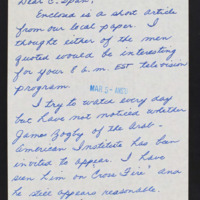 Dear C. Span:
Enclosed is a short article
from our local paper. I
thought either of the men
quoted would be interesting
for your 8 a.m. EST television
program.
MAR 5
I try to watch every day
but have not noticed whether
James Zogby of the Arab-
American Institute has been
invited to appear. I have
seen him on Cross Fire and
he still appears reasonable.